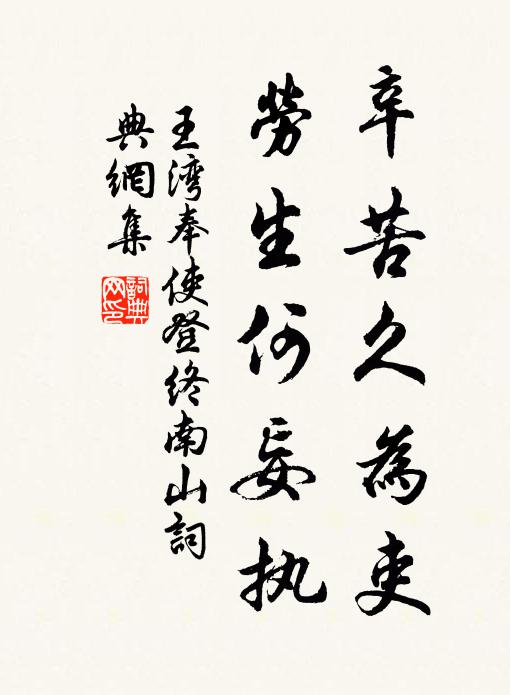 辛苦久為吏
勞生何妄执
王湾奉使登终南山詞
典網集
詞典网印